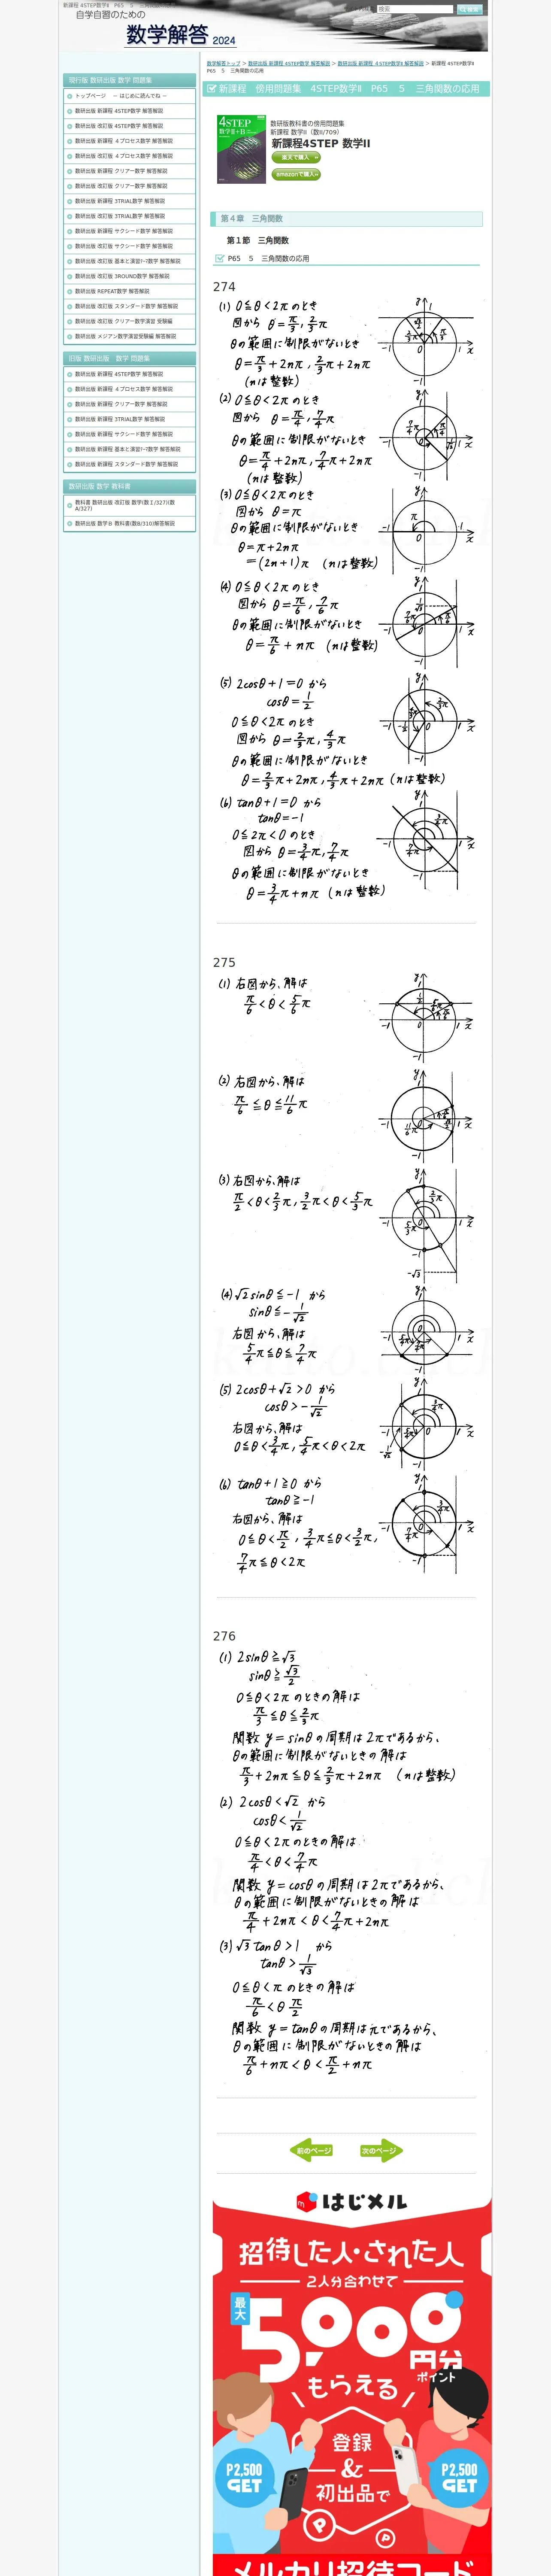 新課程 4STEP数学Ⅱ P65 5 三角関数の応用
自学自習のための
数学解答 2024
検索
数学解答トップ > 数研出版 新課程 4STEP数学 解答解説 > 数研出版 新課程 4STEP数学Ⅱ 解答解説 > 新課程 4STEP数学Ⅱ
P65 5 三角関数の応用
新課程 傍用問題集 4STEP数学Ⅱ P65 5 三角関数の応用
現行版 数研出版 数学 問題集
トップページ ～ はじめに読んでね ～
数研出版 新課程 4STEP数学 解答解説
数研出版 改訂版 4STEP数学 解答解説
数研出版 新課程 4プロセス数学 解答解説
数研出版 改訂版 4プロセス数学 解答解説
数研出版 新課程 クリアー数学 解答解説
数研出版 改訂版 クリアー数学 解答解説
数研出版 新課程 3TRIAL数学 解答解説
数研出版 改訂版 3TRIAL数学 解答解説
数研出版 新課程 サクシード数学 解答解説
数研出版 改訂版 サクシード数学 解答解説
数研出版 改訂版 基本と演習ﾃｰﾏ数学 解答解説
数研出版 改訂版 3ROUND数学 解答解説
数研出版 REPEAT数学 解答解説
数研出版 改訂版 スタンダード数学 解答解説
数研出版 改訂版 クリアー数学演習 受験編
数研出版 メジアン数学演習受験編 解答解説
旧版 数研出版 数学 問題集
数研出版 新課程 4STEP数学 解答解説
数研出版 新課程 4プロセス数学 解答解説
数研出版 新課程 クリアー数学 解答解説
数研出版 新課程 3TRIAL数学 解答解説
数研出版 新課程 サクシード数学 解答解説
数研出版 新課程 基本と演習ﾃｰﾏ数学 解答解説
数研出版 新課程 スタンダード数学 解答解説
数研出版 数学 教科書
教科書 数研出版 改訂版 数学(数Ⅰ/327)(数
A/327)
数研出版 数学B 教科書(数B/310)解答解説
4STEP
数学Ⅱ+B
数研版教科書の傍用問題集
新課程 数学II（数II/709）
新課程4STEP 数学II
楽天で購入
amazonで購入
第４章 三角関数
第１節 三角関数
P65 5 三角関数の応用
274
(1) 0≦θ<2π のとき
図から θ=π/3, 2/3π
θの範囲に制限がないとき
θ=π/3+2nπ, 2/3π+2nπ
(nは整数)
(2) 0≦θ<2π のとき
図から θ=π/4, 7/4π
θの範囲に制限がないとき
θ=π/4+2nπ, 7/4π+2nπ
(nは整数)
(3) 0≦θ<2π のとき
図から θ=π
θの範囲に制限がないとき
θ=π+2nπ
=(2n+1)π (nは整数)
(4) 0≦θ<2π のとき
図から θ=π/6, 7/6π
θの範囲に制限がないとき
θ=π/6+nπ (nは整数)
(5) 2cosθ+1=0 から
cosθ=1/2
0≦θ<2π のとき
図から θ=2/3π, 4/3π
θの範囲に制限がないとき
θ=2/3π+2nπ, 4/3π+2nπ (nは整数)
(6) tanθ+1=0 から
tanθ=-1
0≦2π<0 のとき
図から θ=3/4π, 7/4π
θの範囲に制限がないとき
θ=3/4π+nπ (nは整数)
275
(1) 右図から、解は
π/6<θ<5/6π
(2) 右図から、解は
π/6≦θ≦11/6π
(3) 右図から、解は
π/2<θ<2/3π, 3/2π<θ<5/3π
(4) √2sinθ≦-1 から
sinθ≦-1/√2
右図から、解は
5/4π≦θ≦7/4π
(5) 2cosθ+√2>0 から
cosθ>-1/√2
右図から、解は
0≦θ<3/4π, 5/4π<θ<2π
(6) tanθ+1≧0 から
tanθ≧-1
右図から、解は
0≦θ<π/2, 3/4π≦θ<3/2π,
7/4π≦θ<2π
276
(1) 2sinθ≧√3
sinθ≧√3/2
0≦θ<2π のときの解は
π/3≦θ≦2/3π
関数 y=sinθ の周期は 2π であるから、
θの範囲に制限がないときの解は
π/3+2nπ≦θ≦2/3π+2nπ (nは整数)
(2) 2cosθ<√2 から
cosθ<1/√2
0≦θ<2π のときの解は
π/4<θ<7/4π
関数 y=cosθ の周期は 2π であるから、
θの範囲に制限がないときの解は
π/4+2nπ<θ<7/4π+2nπ
(3) √3tanθ>1 から
tanθ>1/√3
0≦θ<π のときの解は
π/6<θ π/2
関数 y=tanθ の周期はπであるから、
θの範囲に制限がないときの解は
π/6+nπ<θ<π/2+nπ
前のページ
次のページ
はじメル
招待した人・された人
2人分合わせて
最大
5,000円分
ポイント
もらえる
登録
&
初出品で
P2,500
GET
P2,500
GET
メルカリ招待コード